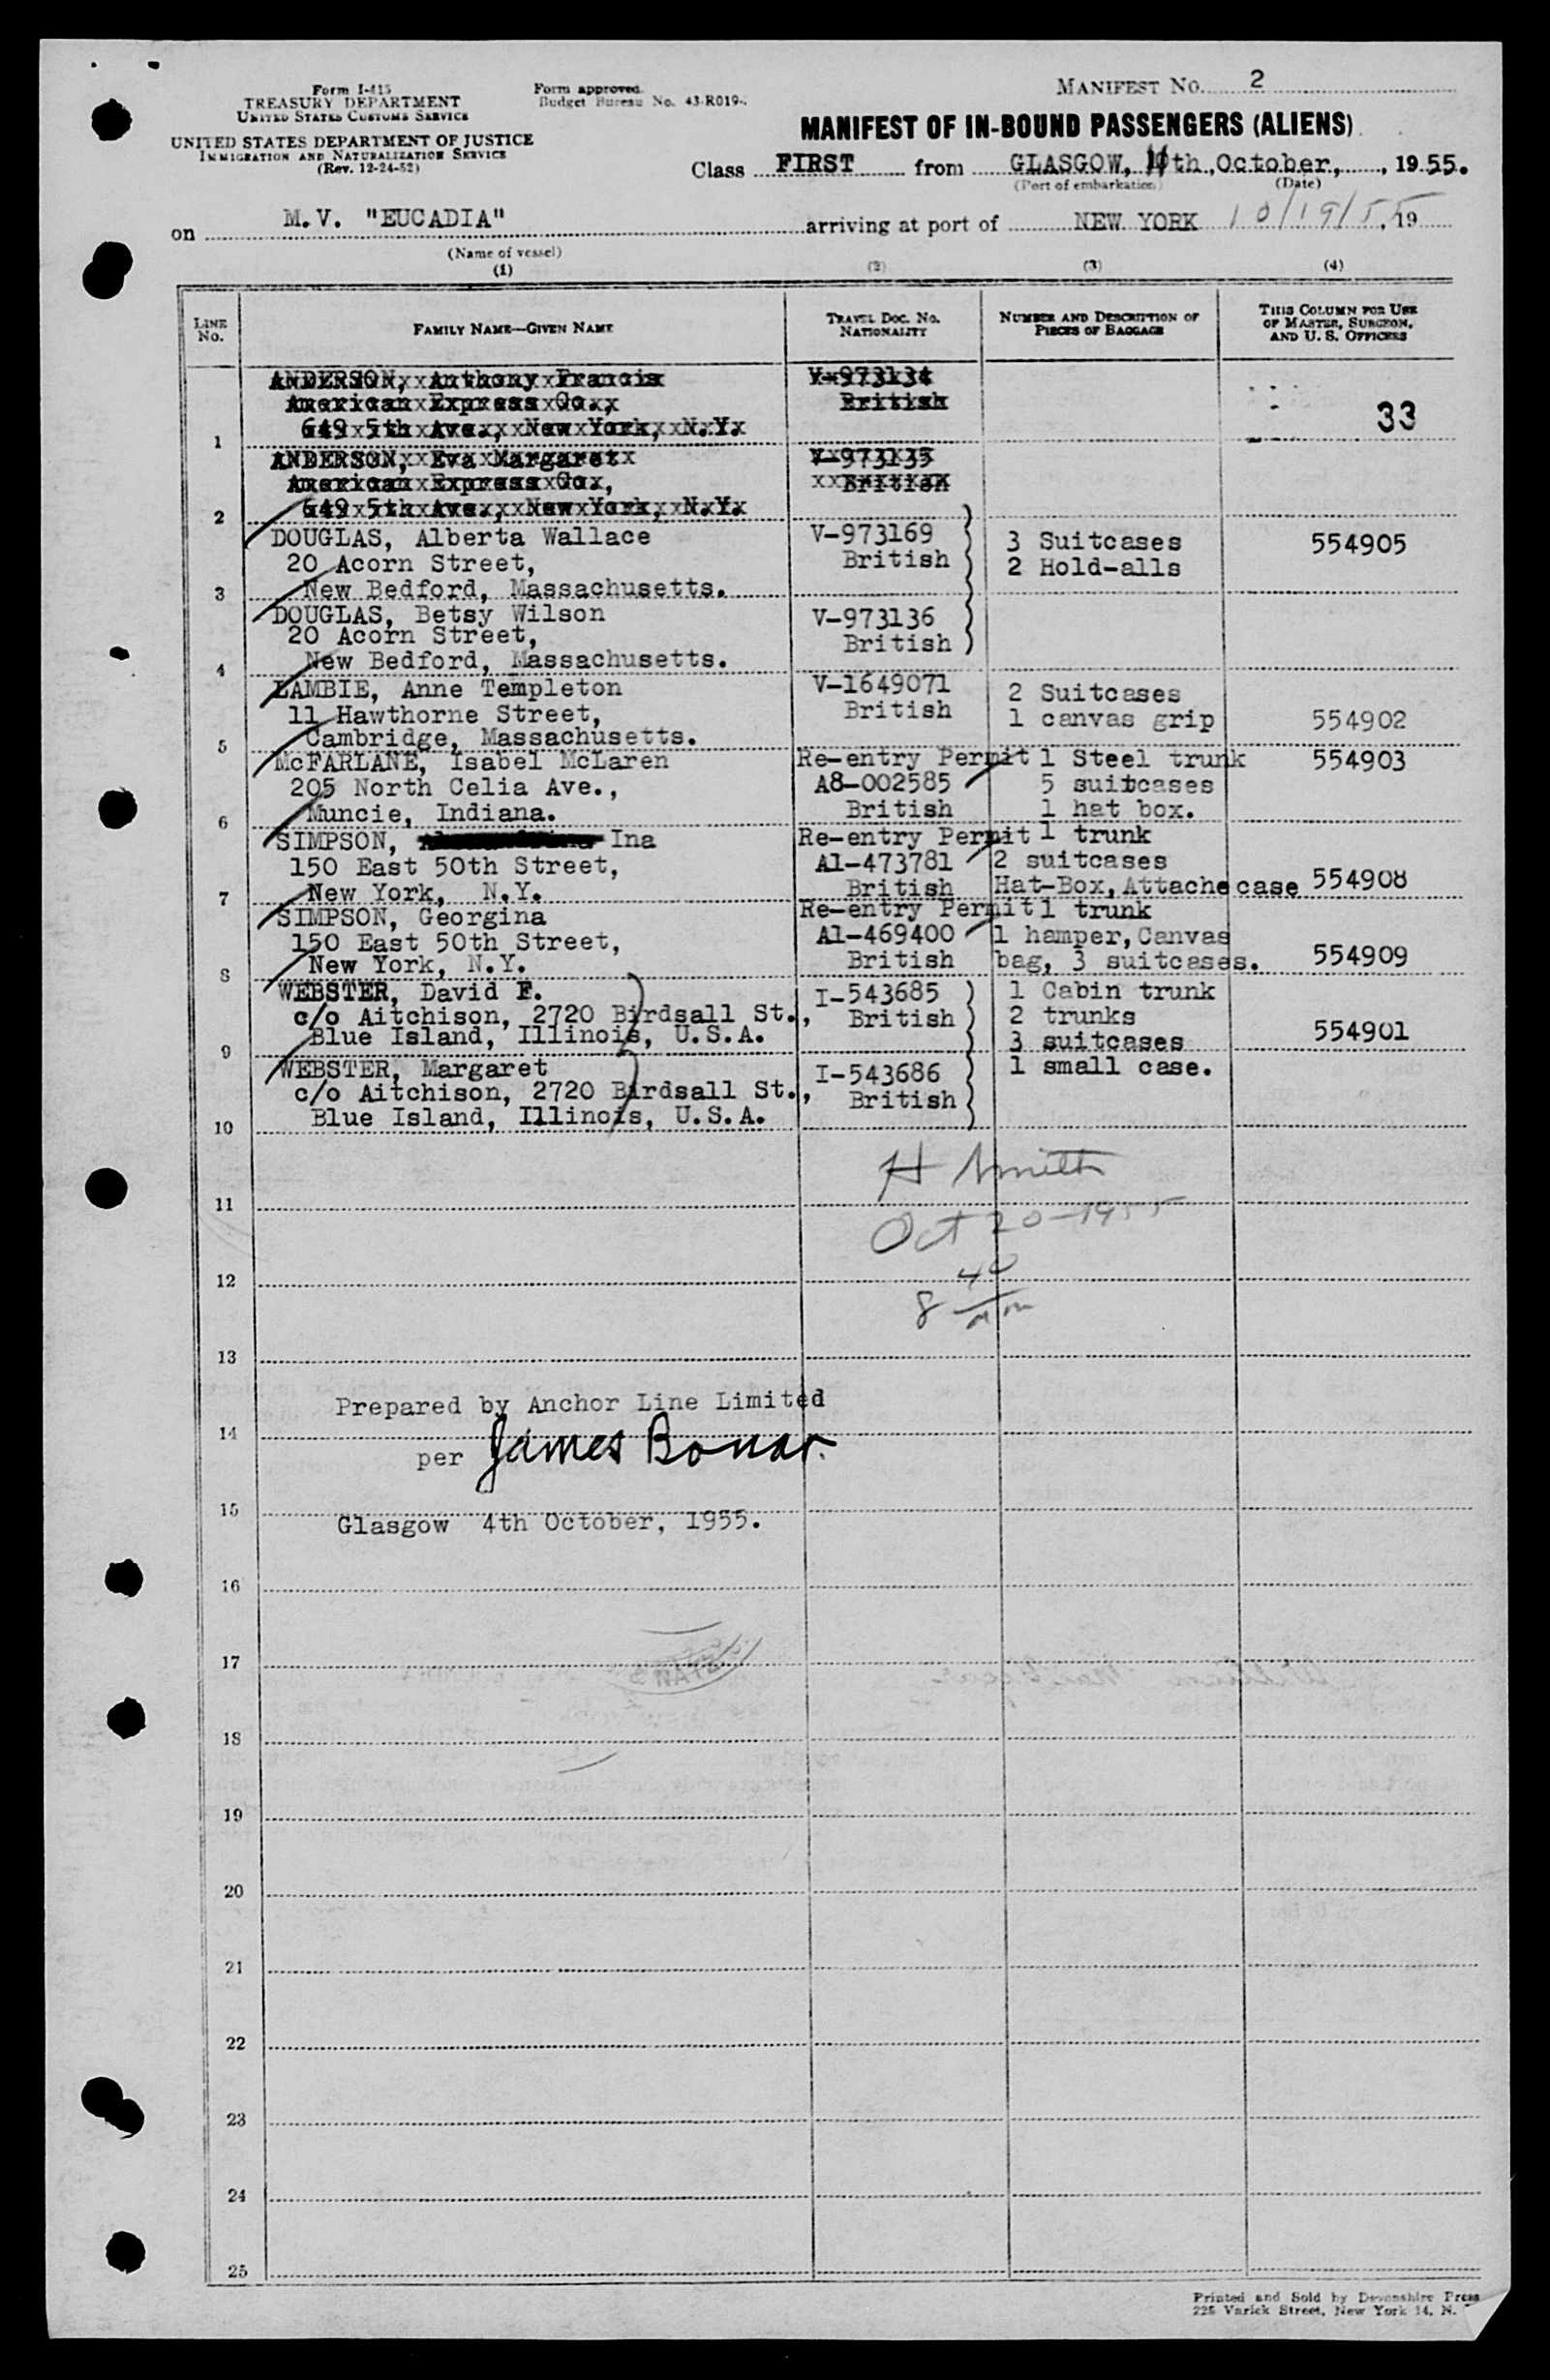 Form I-415
TREASURY DEPARTMENT
UNITED STATES CUSTOMS SERVICE
UNITED STATES DEPARTMENT OF JUSTICE
IMMIGRATION AND NATURALIZATION SERVICE
(Rev. 12-24-52)
Form approved.
Budget Bureau No. 43-R019-.
MANIFEST No. 2
MANIFEST OF IN-BOUND PASSENGERS (ALIENS)
Class FIRST from GLASGOW, th, October, , 1955.
(Port of embarkation) (Date)
on M.V. "EUCADIA" arriving at port of NEW YORK 10/19/55, 19
(Name of vessel)
(1) (2) (3) (4)
LINE No. FAMILY NAME—GIVEN NAME TRAVEL DOC. No. NATIONALITY NUMBER AND DESCRIPTION OF PIECES OF BAGGAGE THIS COLUMN FOR USE OF MASTER, SURGEON, AND U. S. OFFICERS
ANDERSON, Anthony Francis V-973134
American Express Co., British 33
1 649 5th Ave., New York, N.Y.
ANDERSON, Eva Margaret V-973135
American Express Co., British
2 649 5th Ave., New York, N.Y.
DOUGLAS, Alberta Wallace V-973169 3 Suitcases 554905
20 Acorn Street, British 2 Hold-alls
3 New Bedford, Massachusetts.
DOUGLAS, Betsy Wilson V-973136
20 Acorn Street, British
4 New Bedford, Massachusetts.
LAMBIE, Anne Templeton V-1649071 2 Suitcases
11 Hawthorne Street, British 1 canvas grip 554902
5 Cambridge, Massachusetts.
McFARLANE, Isabel McLaren Re-entry Permit 1 Steel trunk 554903
205 North Celia Ave., A8-002585 5 suitcases
6 Muncie, Indiana. British 1 hat box.
SIMPSON, Ina Re-entry Permit 1 trunk
150 East 50th Street, A1-473781 2 suitcases
7 New York, N.Y. British Hat-Box, Attache case 554908
SIMPSON, Georgina Re-entry Permit 1 trunk
150 East 50th Street, A1-469400 1 hamper, Canvas
8 New York, N.Y. British bag, 3 suitcases. 554909
WEBSTER, David F. I-543685 1 Cabin trunk
c/o Aitchison, 2720 Birdsall St., British 2 trunks
9 Blue Island, Illinois, U.S.A. 3 suitcases 554901
WEBSTER, Margaret I-543686 1 small case.
c/o Aitchison, 2720 Birdsall St., British
10 Blue Island, Illinois, U.S.A.
H Smith
11
Oct 20-1955
12
8 40 am
13
Prepared by Anchor Line Limited
14
per James Bonar.
15
Glasgow 4th October, 1955.
16
17
18
19
20
21
22
23
24
25
Printed and Sold by Devonshire Press
225 Varick Street, New York 14, N.